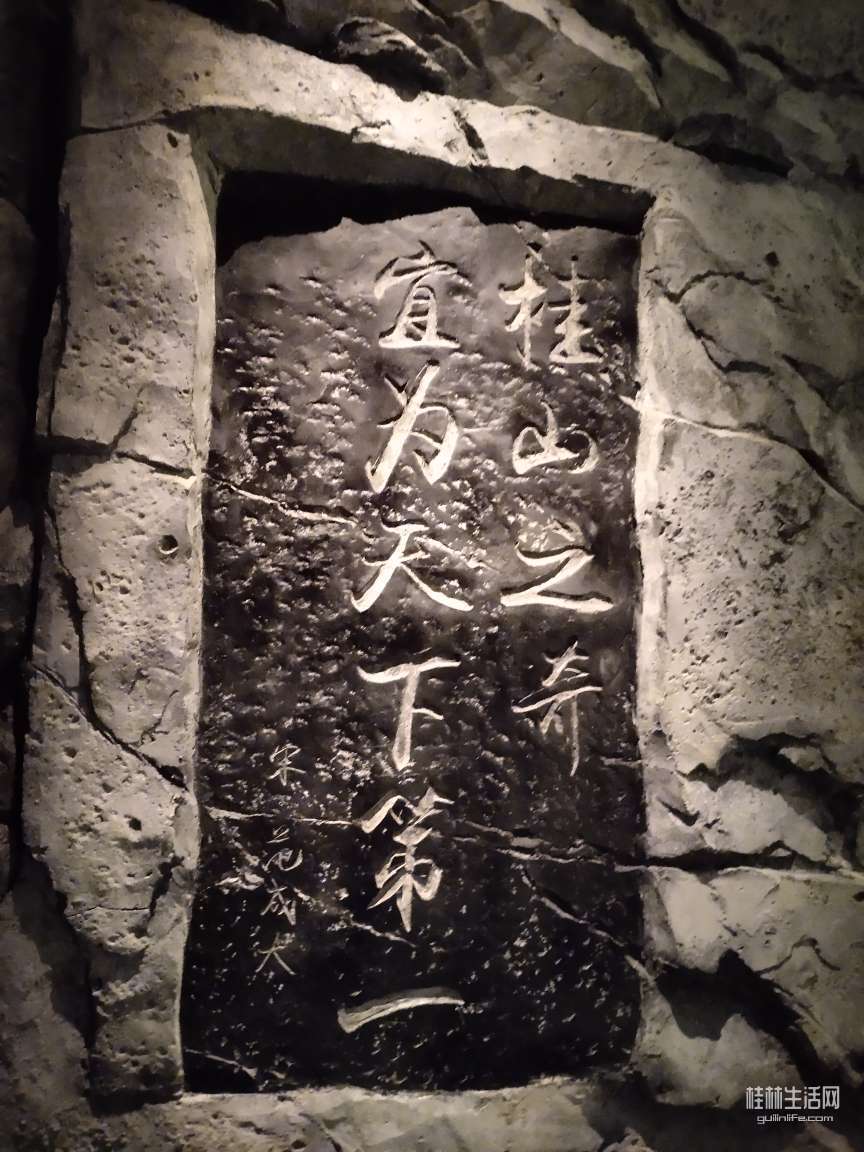 桂山之奇
宜为天下第一
宋 范成大
桂林生活网
guilinlife.com